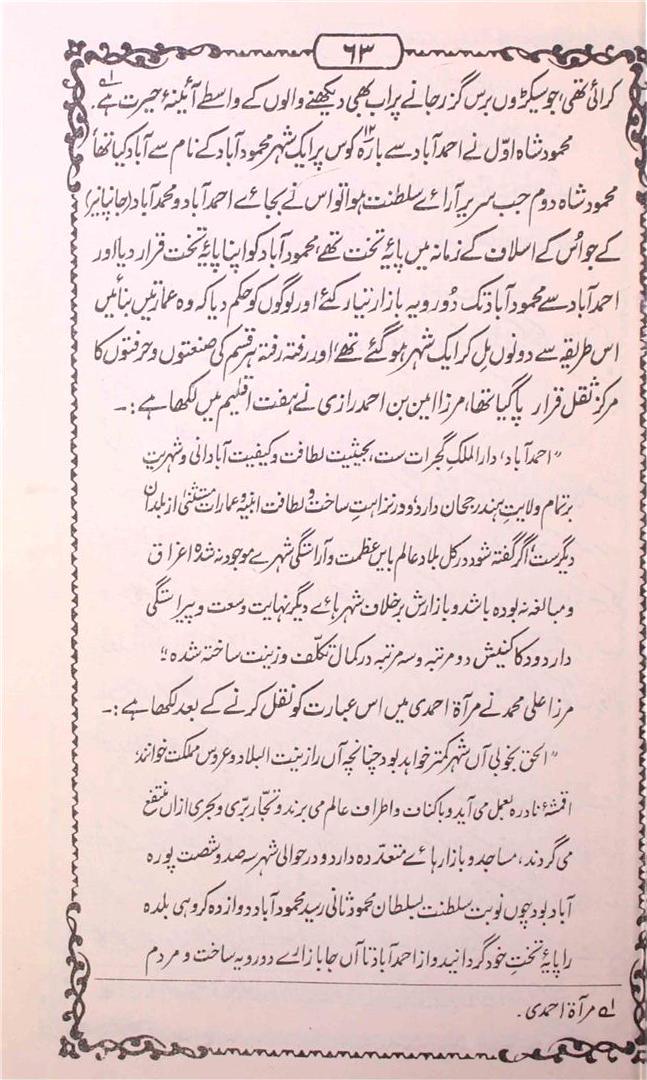 ۶۳
کرائی تھی، جو سیکڑوں برس گزر جانے پر اب بھی دیکھنے والوں کے واسطے آئینۂ حیرت ہے۔ ۱ے
محمود شاہ اوّل نے احمد آباد سے بارہ ۱۲ کوس پر ایک شہر محمود آباد کے نام سے آباد کیا تھا
محمود شاہ دوم جب سریر آرائے سلطنت ہوا تو اس نے بجائے احمد آباد و محمد آباد (چانپانیر)
کے جو اُس کے اسلاف کے زمانہ میں پائۂ تخت تھے، محمود آباد کو اپنا پائۂ تخت قرار دیا اور
احمد آباد سے محمود آباد تک دُو رویہ بازار تیار کئے اور لوگوں کو حکم دیا کہ وہ عمارتیں بنائیں
اس طریقہ سے دونوں مِل کر ایک شہر ہو گئے تھے، اور رفتہ رفتہ ہر قسم کی صنعتوں و حرفتوں کا
مرکز ثقل قرار پا گیا تھا، مرزا امین بن احمد رازی نے ہفت اقلیم میں لکھا ہے :۔
"احمد آباد، دار الملکِ گجرات ست، بحیثیت لطافت و کیفیت آبادانی و شہریت
بر تمام ولایتِ ہند رجحان دارد و در نزاہتِ ساخت و لطافت ابنیہ و عمارات مستثنیٰ از بلدان
دیگر ست، اگر گفتہ شود در کل بلاد عالم بایں عظمت و آراستگی شہرے موجود نہ شدہ اغراق
و مبالغہ نہ بودہ باشد و بازارش برخلاف شہر ہائے دیگر نہایت وسعت و پیراستگی
دارد و دکاکنیش دو مرتبہ و سہ مرتبہ در کمال تکلّف و زینت ساختہ شدہ"
مرزا علی محمد نے مرآۃ احمدی میں اس عبارت کو نقل کرنے کے بعد لکھا ہے :۔
"الحق بخوبی آں شہر کمتر خواہد بود چنانچہ آں را زینت البلاد و عروس مملکت خوانند،
اقمشۂ نادرہ بعمل می آید و باکناف و اطراف عالم می برند و تجّار برّی و بحری ازاں منتفع
می گردند، مساجد و بازار ہائے متعدّدہ دارد و در حوالی شہر سہ صد و شصت پورہ
آباد بود چوں نوبت سلطنت بسلطان محمود ثانی رسید محمود آباد دوازدہ کروہی بلدہ
را پایۂ تخت خود گردانید و از احمد آباد تا آں جا بازارے دو رویہ ساخت و مردم
۱ے مرآۃ احمدی۔